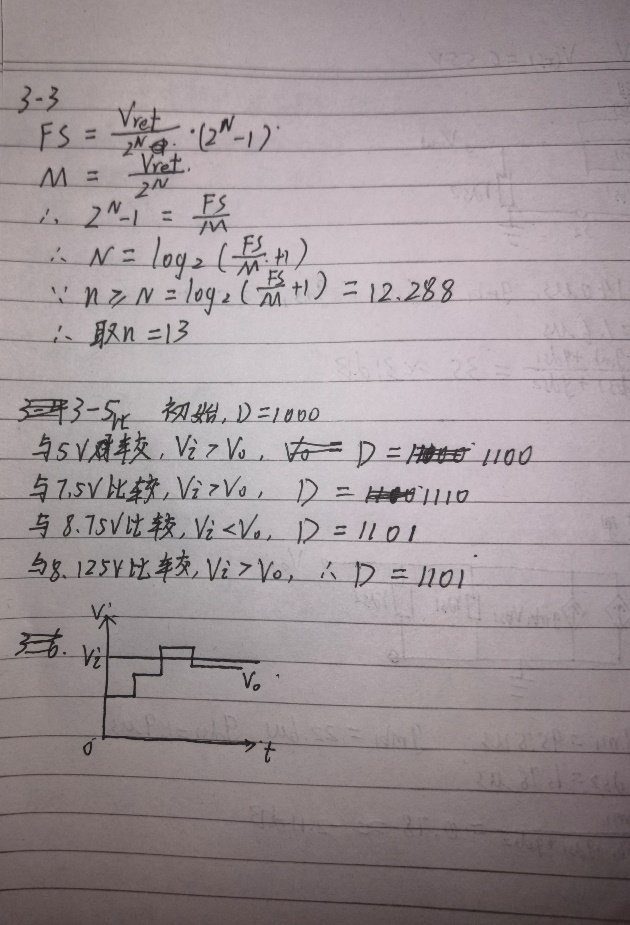 3-3
FS = Vref / 2^N · (2^N - 1)
M = Vref / 2^N
∴ 2^N - 1 = FS / M
∴ N = log₂(FS / M + 1)
∵ n ≥ N = log₂(FS / M + 1) = 12.288
∴ 取n = 13
3-5 初始, D=1000
与5V比较, Vi > Vo, D = 1100
与7.5V比较, Vi > Vo, D = 1110
与8.75V比较, Vi < Vo, D = 1101
与8.125V比较, Vi > Vo, ∴ D = 1101
V
Vi
Vo
0
t